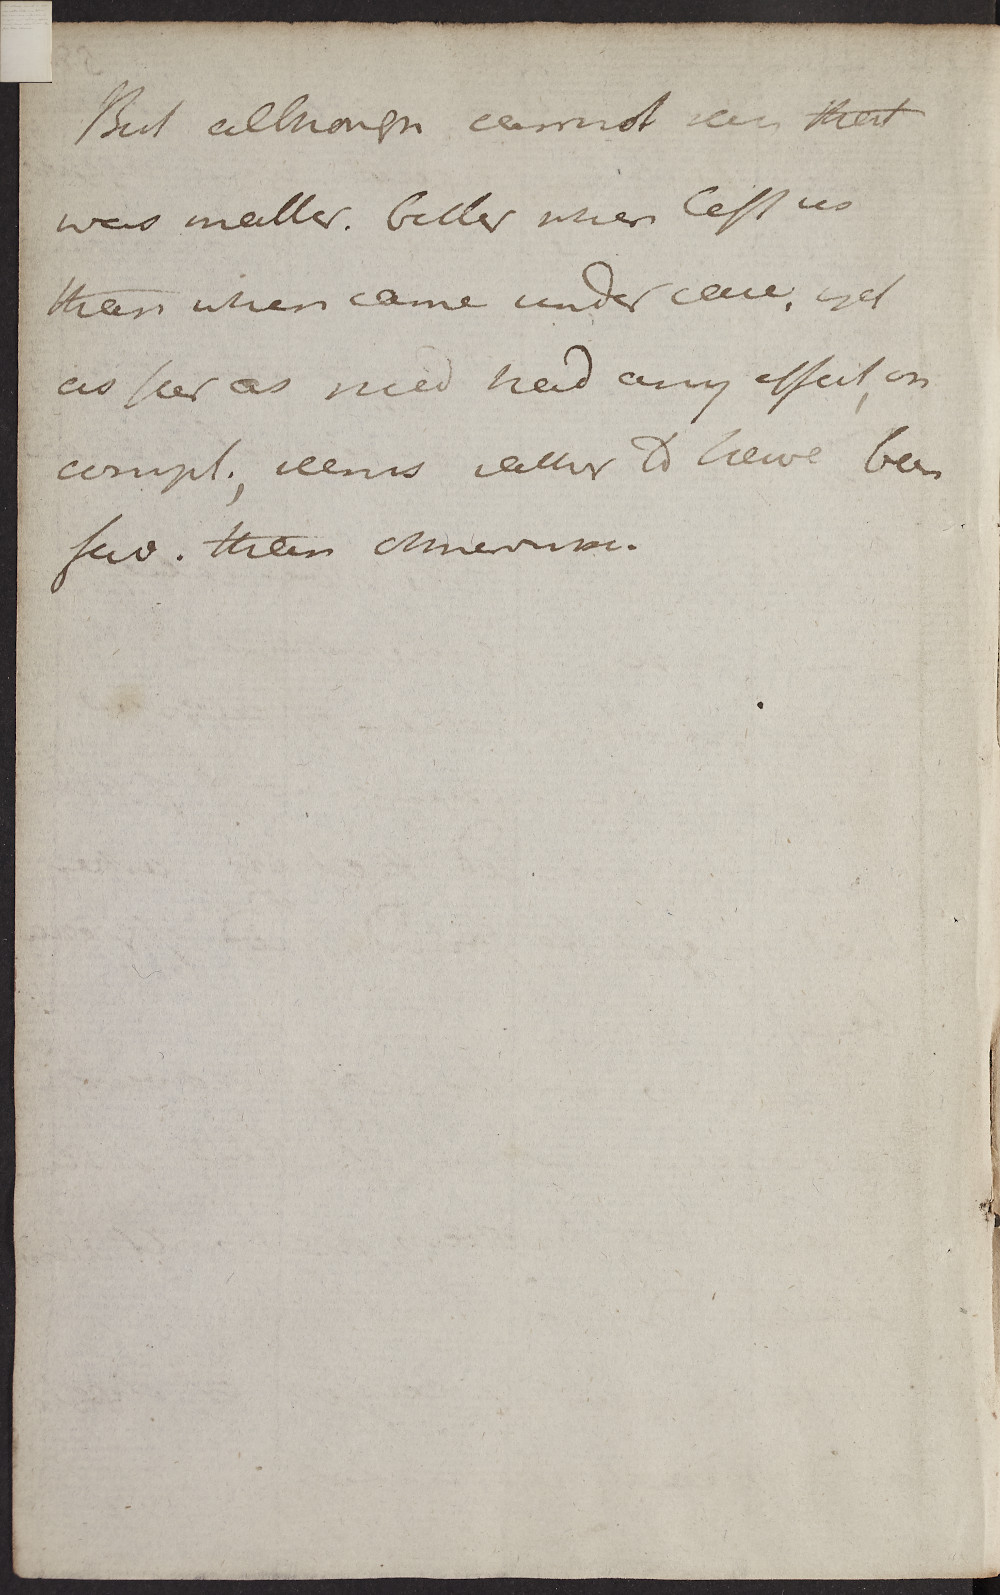 But although cannot say that
was mater. better when left us
than when came under care, yet
as far as med had any effect, on
compl., seems rather to have been
fav. than otherwise.